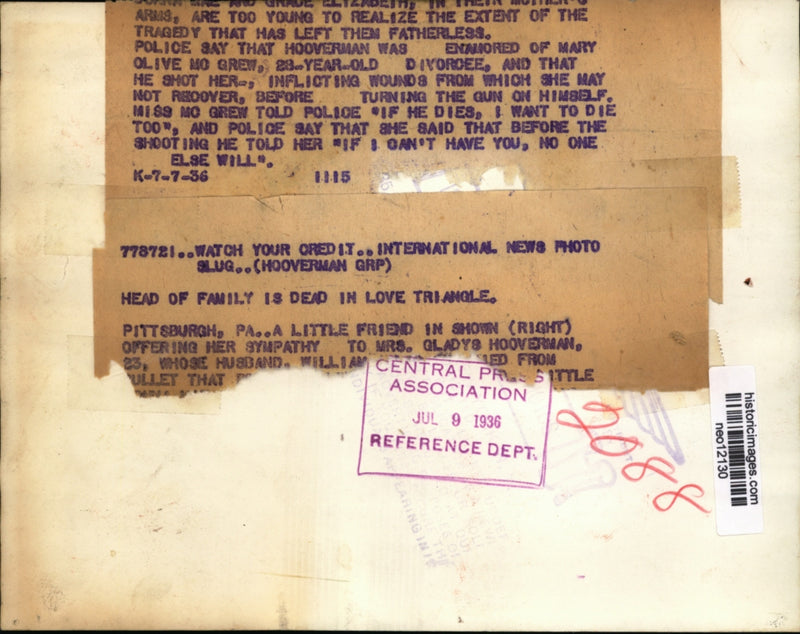 AND GRACE ELIZABETH, IN THEIR MOTHER'S
ARMS, ARE TOO YOUNG TO REALIZE THE EXTENT OF THE
TRAGEDY THAT HAS LEFT THEM FATHERLESS.
POLICE SAY THAT HOOVERMAN WAS ENAMORED OF MARY
OLIVE MC GREW, 28-YEAR-OLD DIVORCEE, AND THAT
HE SHOT HER-, INFLICTING WOUNDS FROM WHICH SHE MAY
NOT RECOVER, BEFORE TURNING THE GUN ON HIMSELF.
MISS MC GREW TOLD POLICE "IF HE DIES, I WANT TO DIE
TOO", AND POLICE SAY THAT SHE SAID THAT BEFORE THE
SHOOTING HE TOLD HER "IF I CAN'T HAVE YOU, NO ONE
ELSE WILL".
K-7-7-36 1115
778721..WATCH YOUR CREDIT..INTERNATIONAL NEWS PHOTO
SLUG..(HOOVERMAN GRP)
HEAD OF FAMILY IS DEAD IN LOVE TRIANGLE.
PITTSBURGH, PA..A LITTLE FRIEND IN SHOWN (RIGHT)
OFFERING HER SYMPATHY TO MRS. GLADYS HOOVERMAN,
23, WHOSE HUSBAND, WILLIAM FROM
BULLET THAT LITTLE
CENTRAL PRESS
ASSOCIATION
JUL 9 1936
REFERENCE DEPT.
2088
historicimages.com
neo12130